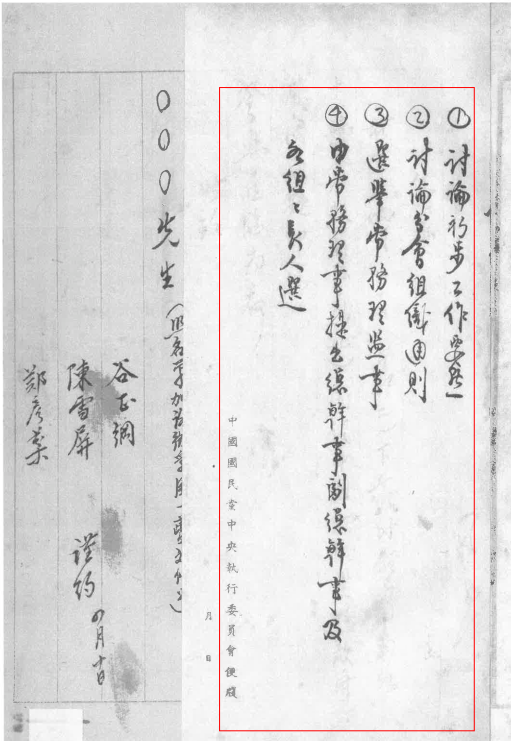 ①討論初步工作要點
②討論分會組織通則
③選舉常務理監事
④由常務理事提出總幹事副總幹事及
各組組長人選
中國國民黨中央執行委員會便牋
月 日
○○○先生
谷正綱
陳雪屏
鄭彥棻
謹約
四月十日